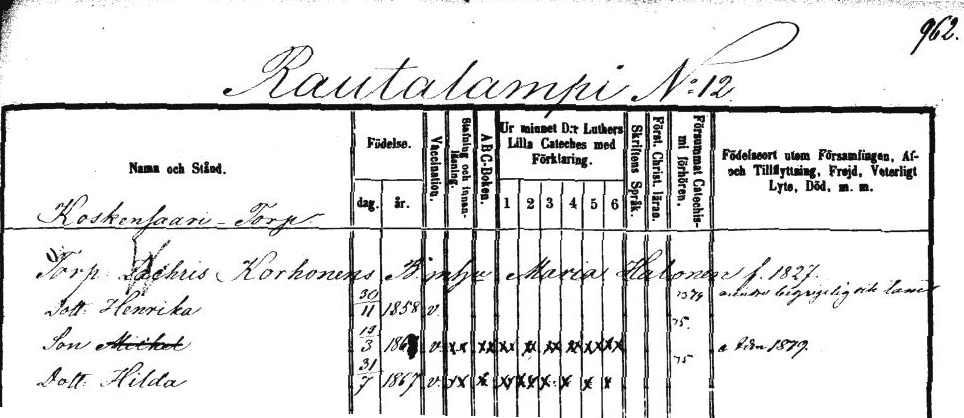 962.
Rautalampi No: 12
Namn och Stånd.
Födelse.
dag. år.
Vaccination.
Stafning och innanläsning.
A B C-Boken.
Ur minnet D:r Luthers Lilla Cateches med Förklaring.
1 2 3 4 5 6
Skriftens Språk.
Först. Christ. läran.
Försummat Catechismi förhören.
Födelseort utom Församlingen, Af- och Tillflyttning, Frejd, Veterligt Lyte, Död, m. m.
Koskensaari - Torp
Torp. Korhonens Maria Halonen f. 1827.
Dott. Henrika 30/11 1858 v.
Son Michel 3 v. xx xx x x x x x x 75 1879.
Dott. Hilda 31/7 1867 v. xx x x x x x x x